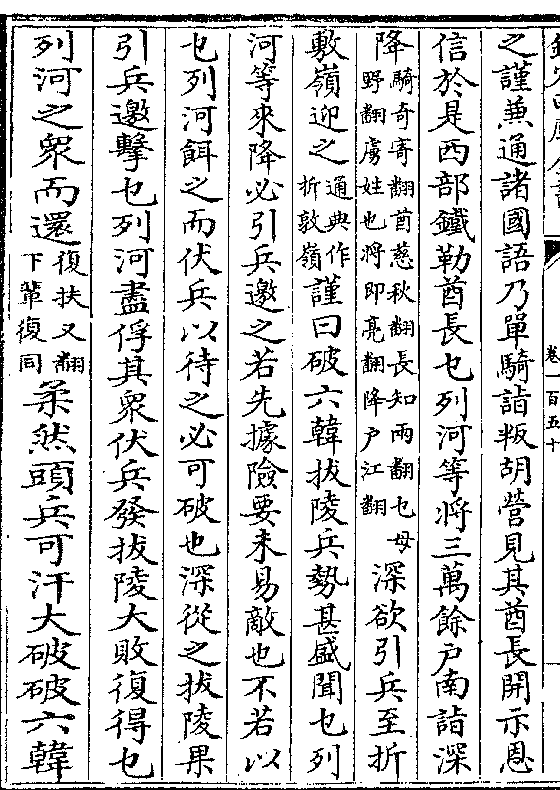 卷一百五十
之謹兼通諸國語乃單騎詣叛胡營見其酋長開示恩
信於是西部鐵勒酋長乜列河等將三萬餘戶南詣深
降騎奇寄翻酋慈秋翻長知兩翻乜母野翻虜姓也將即亮翻降戶江翻深欲引兵至折
敷嶺迎之通典作折敦嶺謹曰破六韓拔陵兵勢甚盛聞乜列
河等來降必引兵邀之若先據險要未易敵也不若以
乜列河餌之而伏兵以待之必可破也深從之拔陵果
引兵邀擊乜列河盡俘其衆伏兵發拔陵大敗復得乜
列河之衆而還復扶又翻下輩復同柔然頭兵可汗大破破六韓